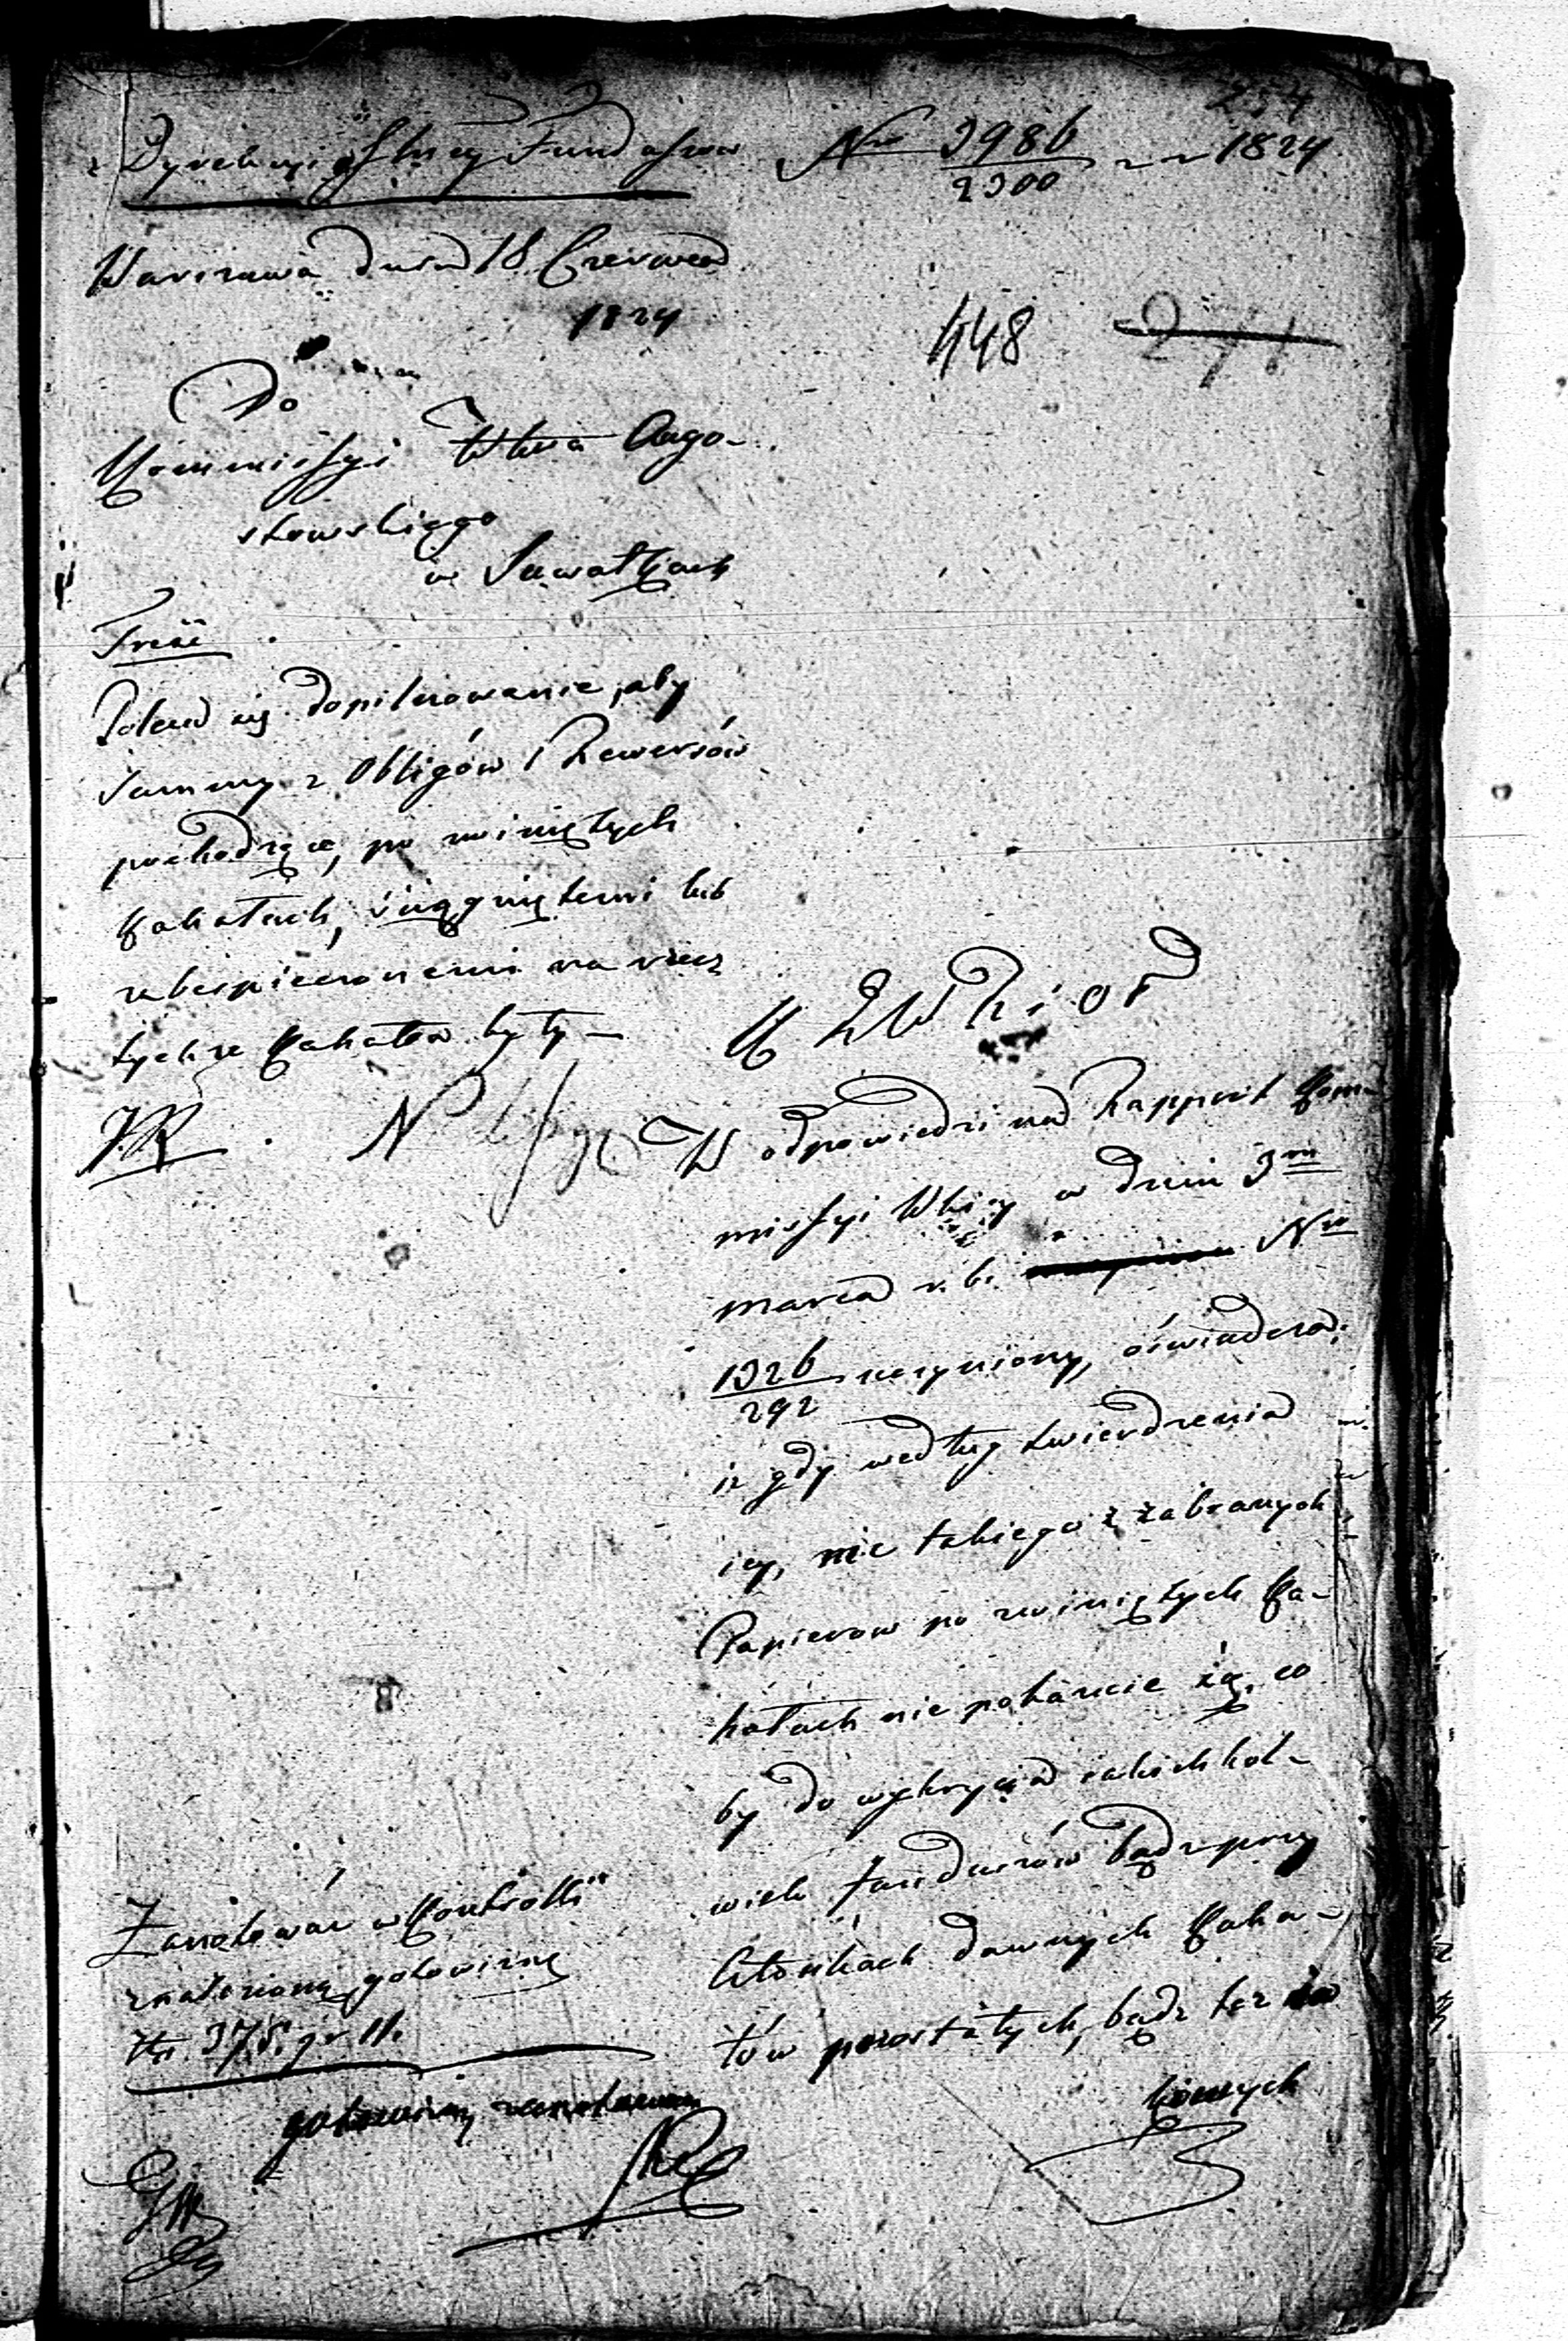 Dyrekcyi Skrey Funduszow Nro 3986/2300 1824
254
Warszawa dnia 18 Czerwca
1824
448 271
Do
Kommissyi Wtwa Augo-
stowskiego
w Suwałkach
Treść
Poleca się dopilnowanie, aby
Summy z Obligów i Rewersów
pochodzące, po zwiniętych
Kahałach, ściągniętemi lub
zabespieczonemi na rzecz
tychże Kahałów były –
KRPiOP
W odpowiedzi na Rapport Kom-
missyi Wkiey w dniu 3m
marca r. b. Nro
1326/292 uczyniony, oświadcza:
iż gdy według twierdzenia
iey, nic takiego z zabranych
Papierow po zwiniętych Ka-
hałach nie pokazuie się, co
by do wykrycia iakichkol-
wiek funduszów bądz przy
Członkach dawnych Kaha-
łów pozostałych, bądz też
Zanotować w Kontrolli
znalezioną gotowiznę
Zł. 375. gr 11.
gotowiznę zanotowano